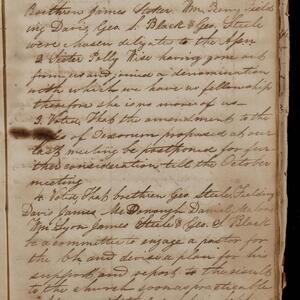 Brethren James Stoker. Wm Perry Field
ing Davis Geo. S. Black & Geo. Steele
were chosen deligats to the Assn
2. Sister Polly Wise having gone out
from us and joined a denomination
with which we have no fellowship
therefore she is no more of us
3. Voted, That the amendment to the
Rules of Decorum proposed at our
last meeting be postponed for fur
ther consideration till the October
meeting
4. Voted, That brethren Geo. Steele Fielding
Davis James McDonough Daniel
Wm Lyon James Steele & Geo. S. Black
be a committe to engage a pastor for
the Ch and devise a plan for his
support, and report to the result
to the church soon as practigable